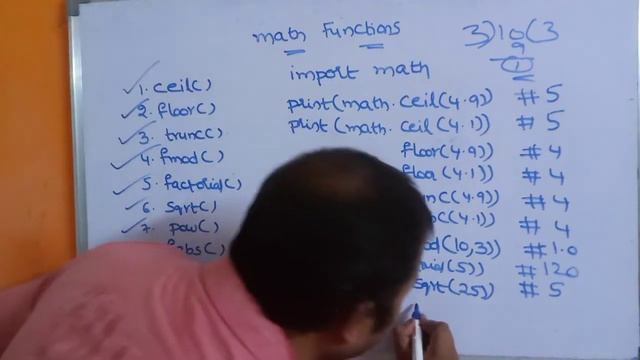 math Functions
3)10(3
9
1
import math
1. ceil()
2. floor()
3. trunc()
4. fmod()
5. factorial()
6. sqrt()
7. pow()
fabs()
print(math. ceil(4.9)) # 5
print(math. ceil(4.1)) # 5
floor(4.9)) # 4
floor(4.1)) # 4
unc(4.9)) # 4
nc(4.1)) # 4
od(10,3)) # 1.0
rial(5)) # 120
sqrt(25)) # 5